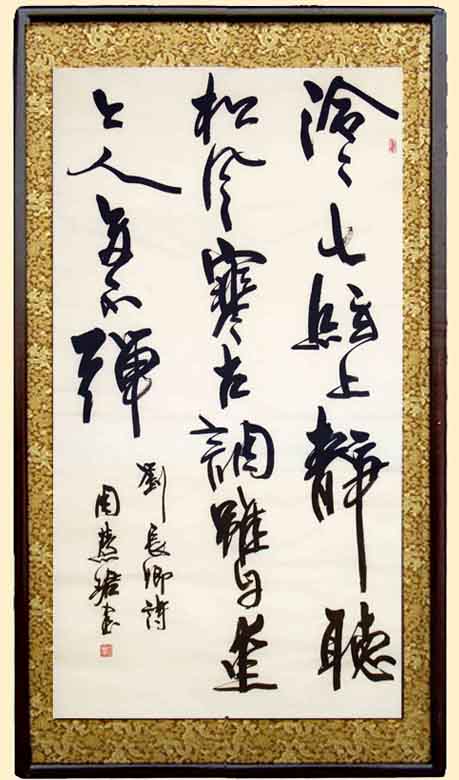 泠々七絃上靜聽
松風寒古調雖自愛
今人多不彈
劉長卿詩
周慧珺書